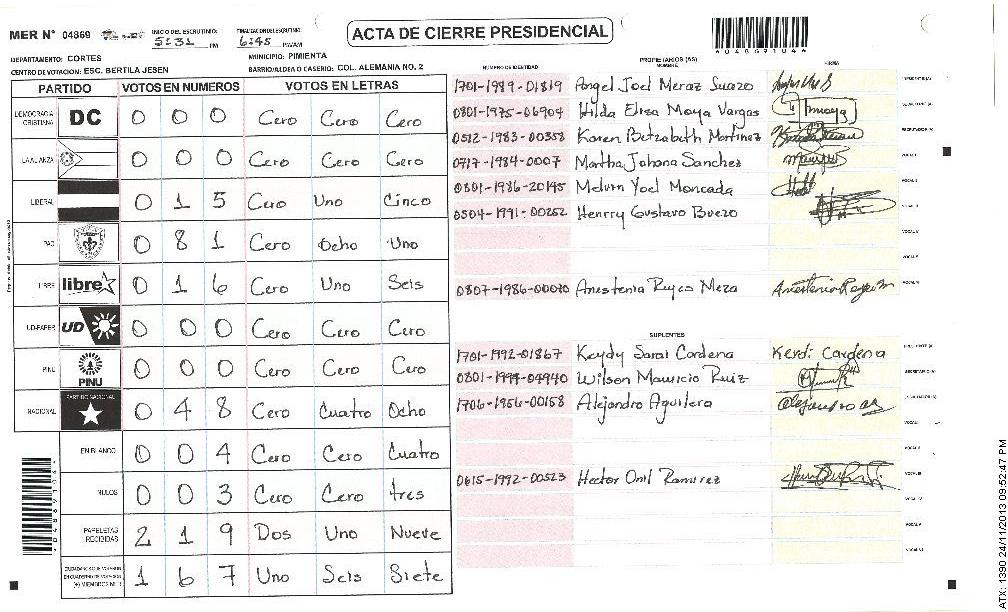 MER N° 04869
INICIO DEL ESCRUTINIO: 5:31 PM
FINALIZACION DEL ESCRUTINIO: 6:45 PM/AM
ACTA DE CIERRE PRESIDENCIAL
4048691044
DEPARTAMENTO: CORTES
MUNICIPIO: PIMIENTA
CENTRO DE VOTACION: ESC. BERTILA JESEN
BARRIO/ALDEA O CASERIO: COL. ALEMANIA NO. 2
PARTIDO VOTOS EN NUMEROS VOTOS EN LETRAS
DEMOCRACIA CRISTIANA DC 0 0 0 Cero Cero Cero
LA ALIANZA 0 0 0 Cero Cero Cero
LIBERAL 0 1 5 Cero Uno Cinco
PAC 0 8 1 Cero Ocho Uno
LIBRE libre 0 1 6 Cero Uno Seis
UD-FAPER UD 0 0 0 Cero Cero Cero
PINU PINU 0 0 0 Cero Cero Cero
NACIONAL PARTIDO NACIONAL 0 4 8 Cero Cuatro Ocho
EN BLANCO 0 0 4 Cero Cero Cuatro
NULOS 0 0 3 Cero Cero tres
PAPELETAS RECIBIDAS 2 1 9 Dos Uno Nueve
CIUDADANOS QUE VOTARON EN CUADERNO DE VOTACION (+) MIEMBROS MER 1 6 7 Uno Seis Siete
NUMERO DE IDENTIDAD PROPIETARIOS (AS) NOMBRE FIRMA
1701-1989-01819 Angel Joel Meraz Suazo PRESIDENTE (A)
0801-1975-06904 Hilda Elisa Moya Vargas SECRETARIO (A)
0512-1983-00358 Karen Betzabeth Martinez ESCRUTADOR (A)
0717-1984-0007 Martha Johana Sanchez VOCAL I
0801-1986-20145 Melvin Yoel Moncada VOCAL II
0504-1991-00252 Henrry Gustavo Buezo VOCAL III
VOCAL IV
VOCAL V
0807-1986-00070 Anestenia Reyes Meza VOCAL VI
SUPLENTES
1701-1992-01867 Keydy Sarai Cardena Kerdi Cardena PRESIDENTE (A)
0801-1994-04940 Wilson Mauricio Ruiz SECRETARIO (A)
1706-1956-00158 Alejandro Aguilera ESCRUTADOR (A)
VOCAL I
VOCAL II
0615-1992-00523 Hector Onil Ramirez VOCAL III
VOCAL IV
VOCAL V
VOCAL VI
ATX: 1390 24/11/2013 09:52:47 PM